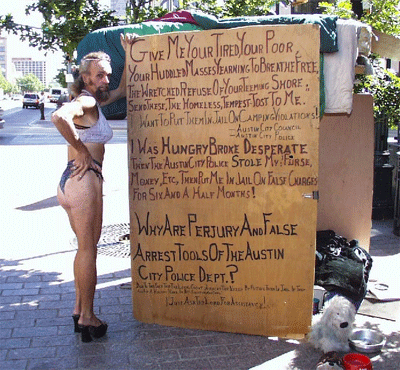 GIVE ME YOUR TIRED YOUR POOR,
YOUR HUDDLED MASSES YEARNING TO BREATHE FREE,
THE WRETCHED REFUSE OF YOUR TEEMING SHORE;
SEND THESE, THE HOMELESS, TEMPEST TOST TO ME.
I WANT TO PUT THEM IN JAIL ON CAMPING VIOLATIONS!
—AUSTIN CITY COUNCIL
—AUSTIN CITY POLICE
I WAS HUNGRY BROKE DESPERATE
THEN THE AUSTIN CITY POLICE STOLE MY: PURSE,
MONEY, ETC, THEN PUT ME IN JAIL ON FALSE CHARGES
FOR SIX AND A HALF MONTHS!
WHY ARE PERJURY AND FALSE
ARREST TOOLS OF THE AUSTIN
CITY POLICE DEPT.?